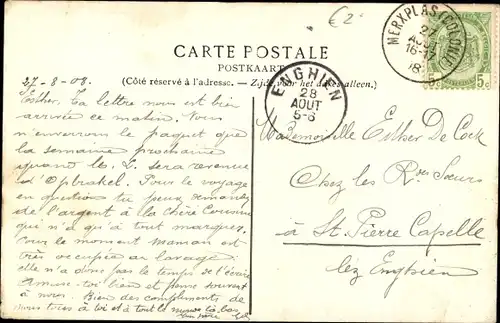 €2
CARTE POSTALE
POSTKAART
(Côté réservé à l'adresse. — Zijde voor het adres alleen.)
MERXPLAS (COLONIE)
27
AOUT
16-17
ENGHIEN
28
AOUT
5-6
5c
27-8-08.
Esther, Ta lettre nous est bien
arrivée ce matin. Nous
n'enverrons le paquet que
la semaine prochaine
quand le sera revenue
d'Opbrakel. Pour le voyage
en question tu peux demander
de l'argent à la Chère Cousine
qui n'a qu'à tout marquer.
Pour le moment Maman est
très occupée au lavage;
elle n'a donc pas le temps de t'écrire
Amuse-toi bien et pense souvent
à nous. Bien des compliments de
nous tous à toi et à tout le monde là-bas
Mademoiselle Esther De Cock
Chez les Rdes Soeurs
à St. Pierre Capelle
lez Enghien